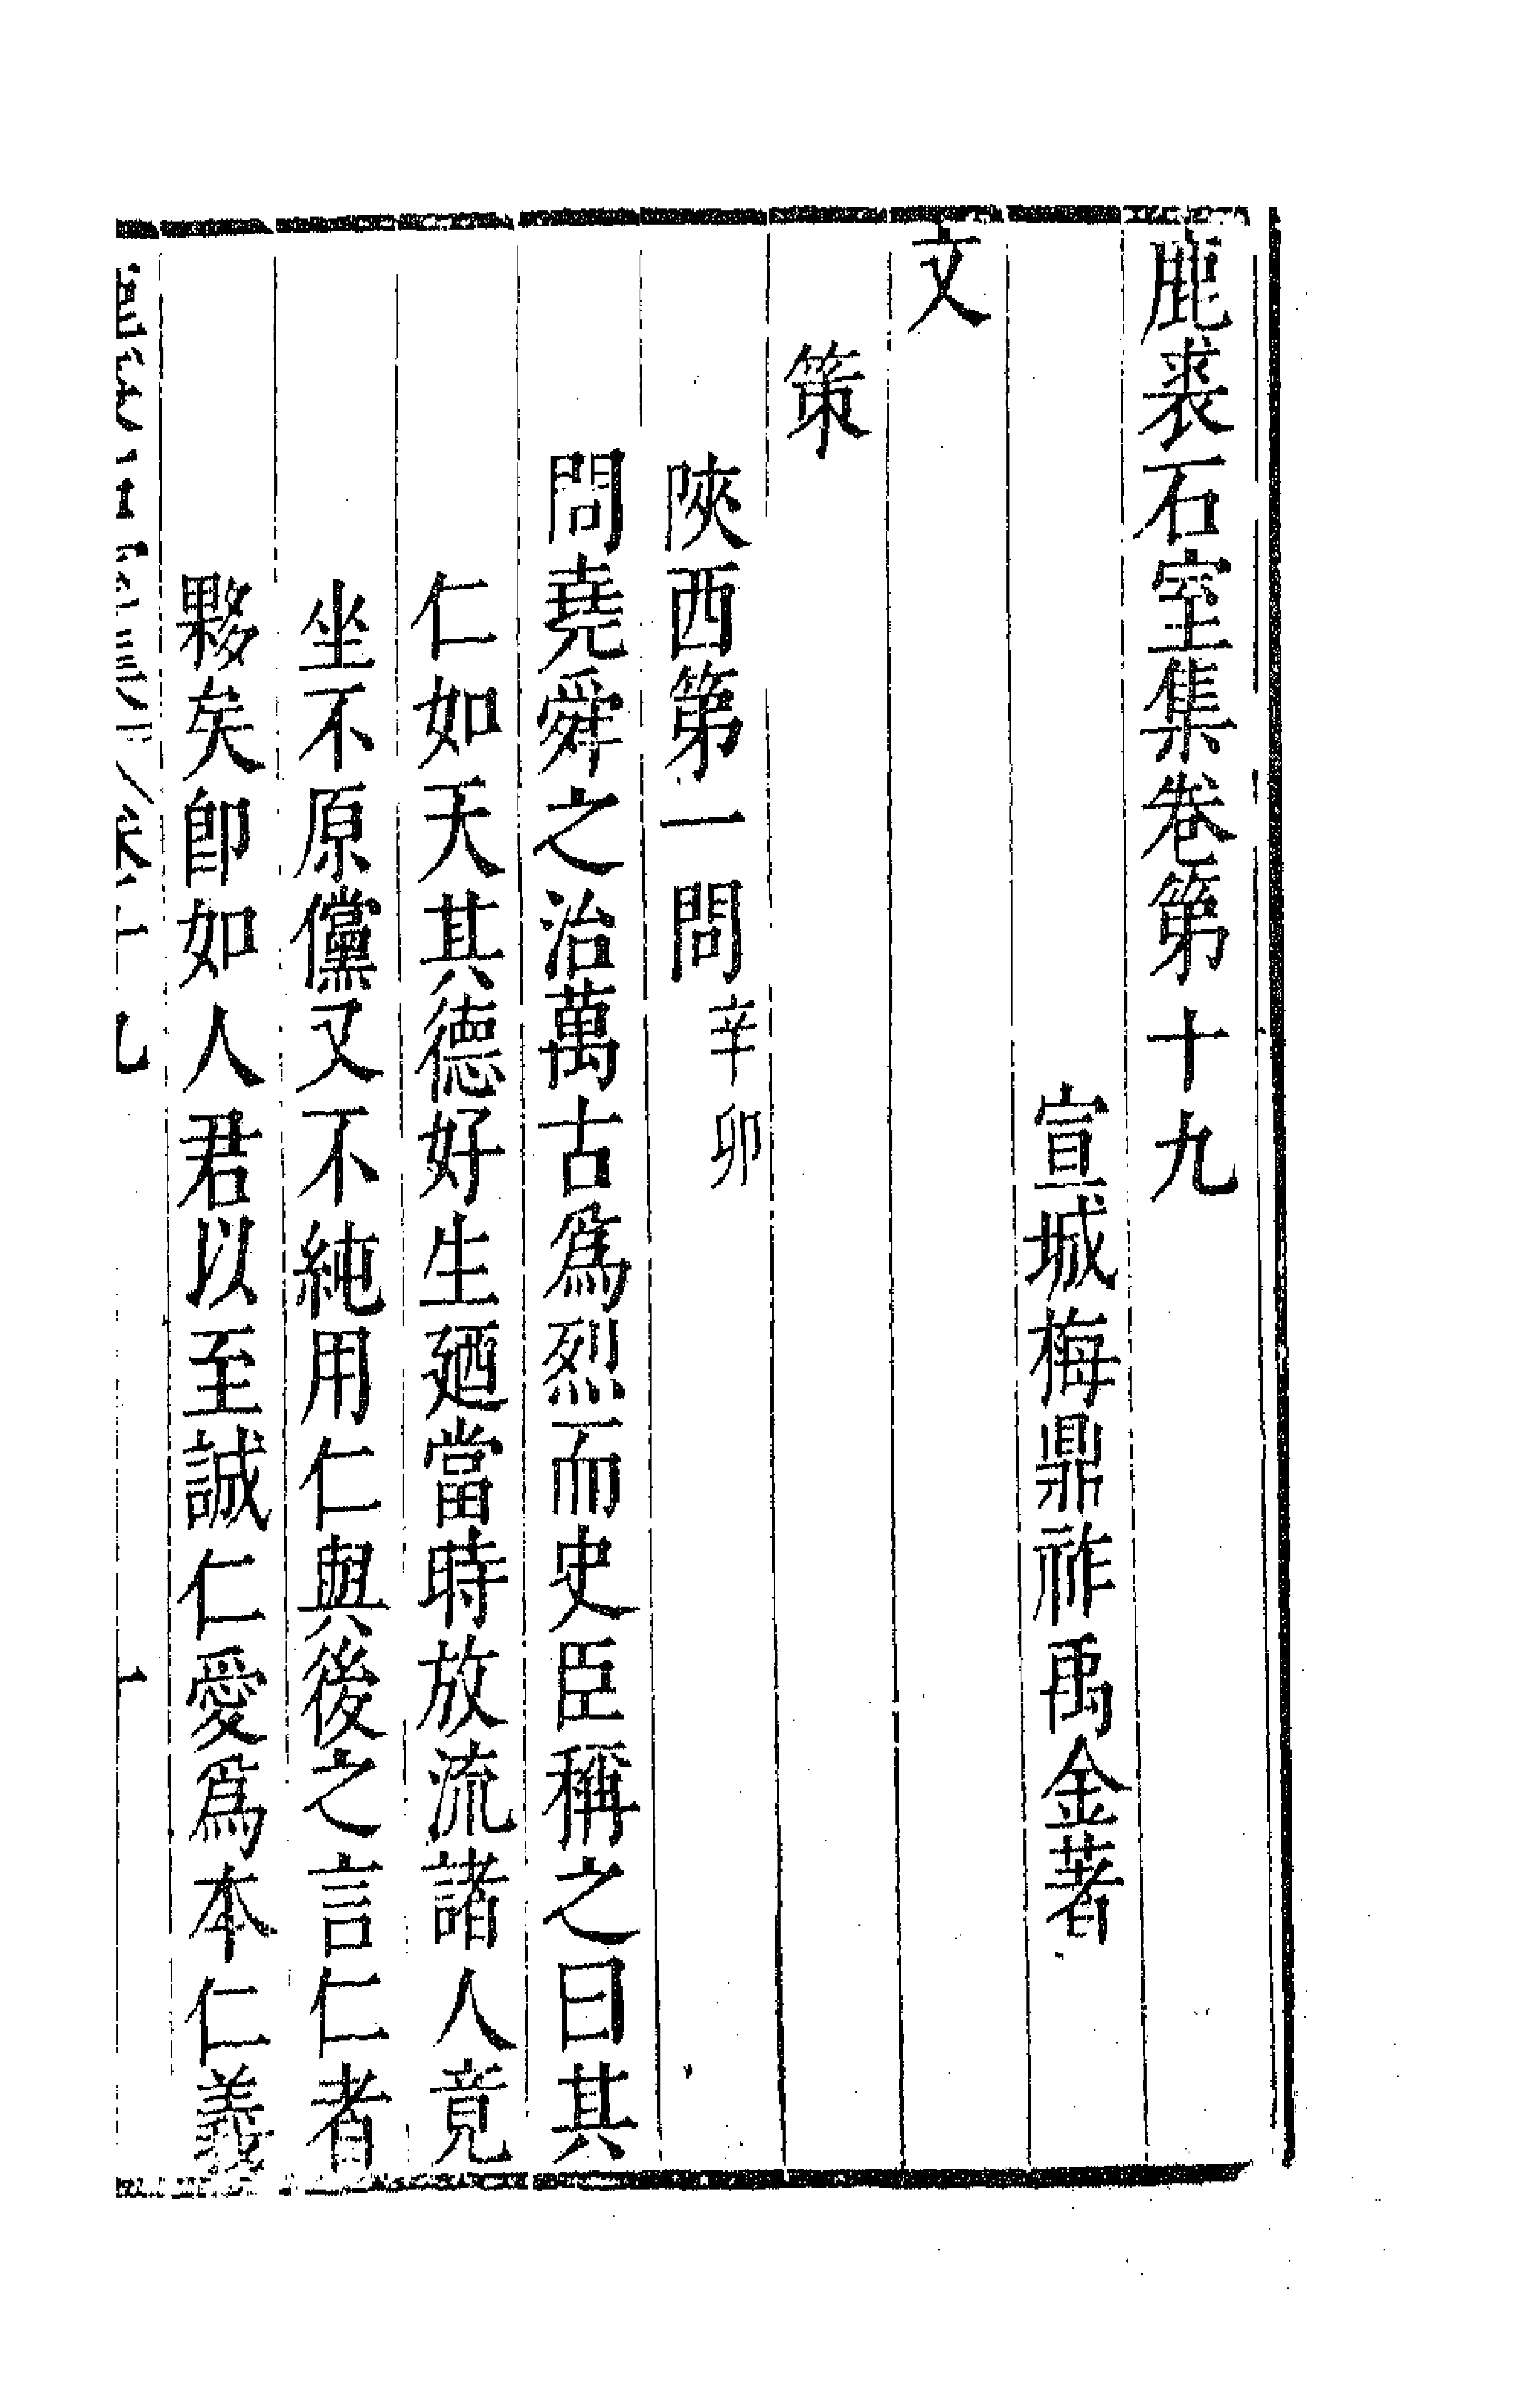 鹿裘石室集卷第十九
宣城梅鼎祚禹金著
文
策
陝西第一問辛卯
問堯舜之治萬古爲烈而史臣稱之曰其
仁如天其德好生廼當時放流諸人竟
坐不原儻又不純用仁與後之言仁者
夥矣卽如人君以至誠仁愛爲本仁義